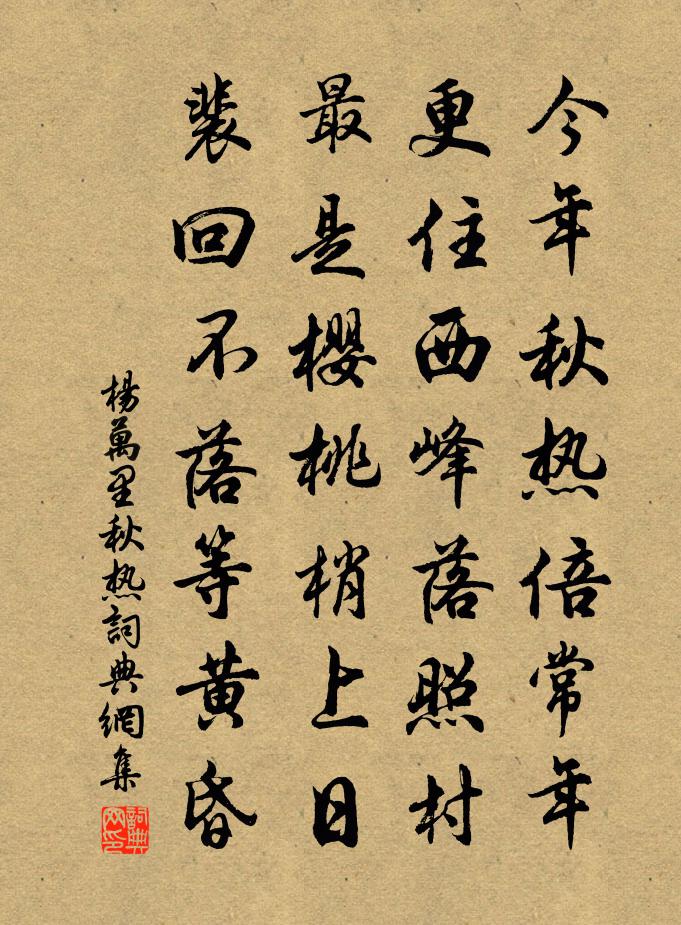 今年秋热倍常年
更住西峰落照村
最是樱桃梢上日
裴回不落等黄昏
杨万里秋热词典网集
词典网印